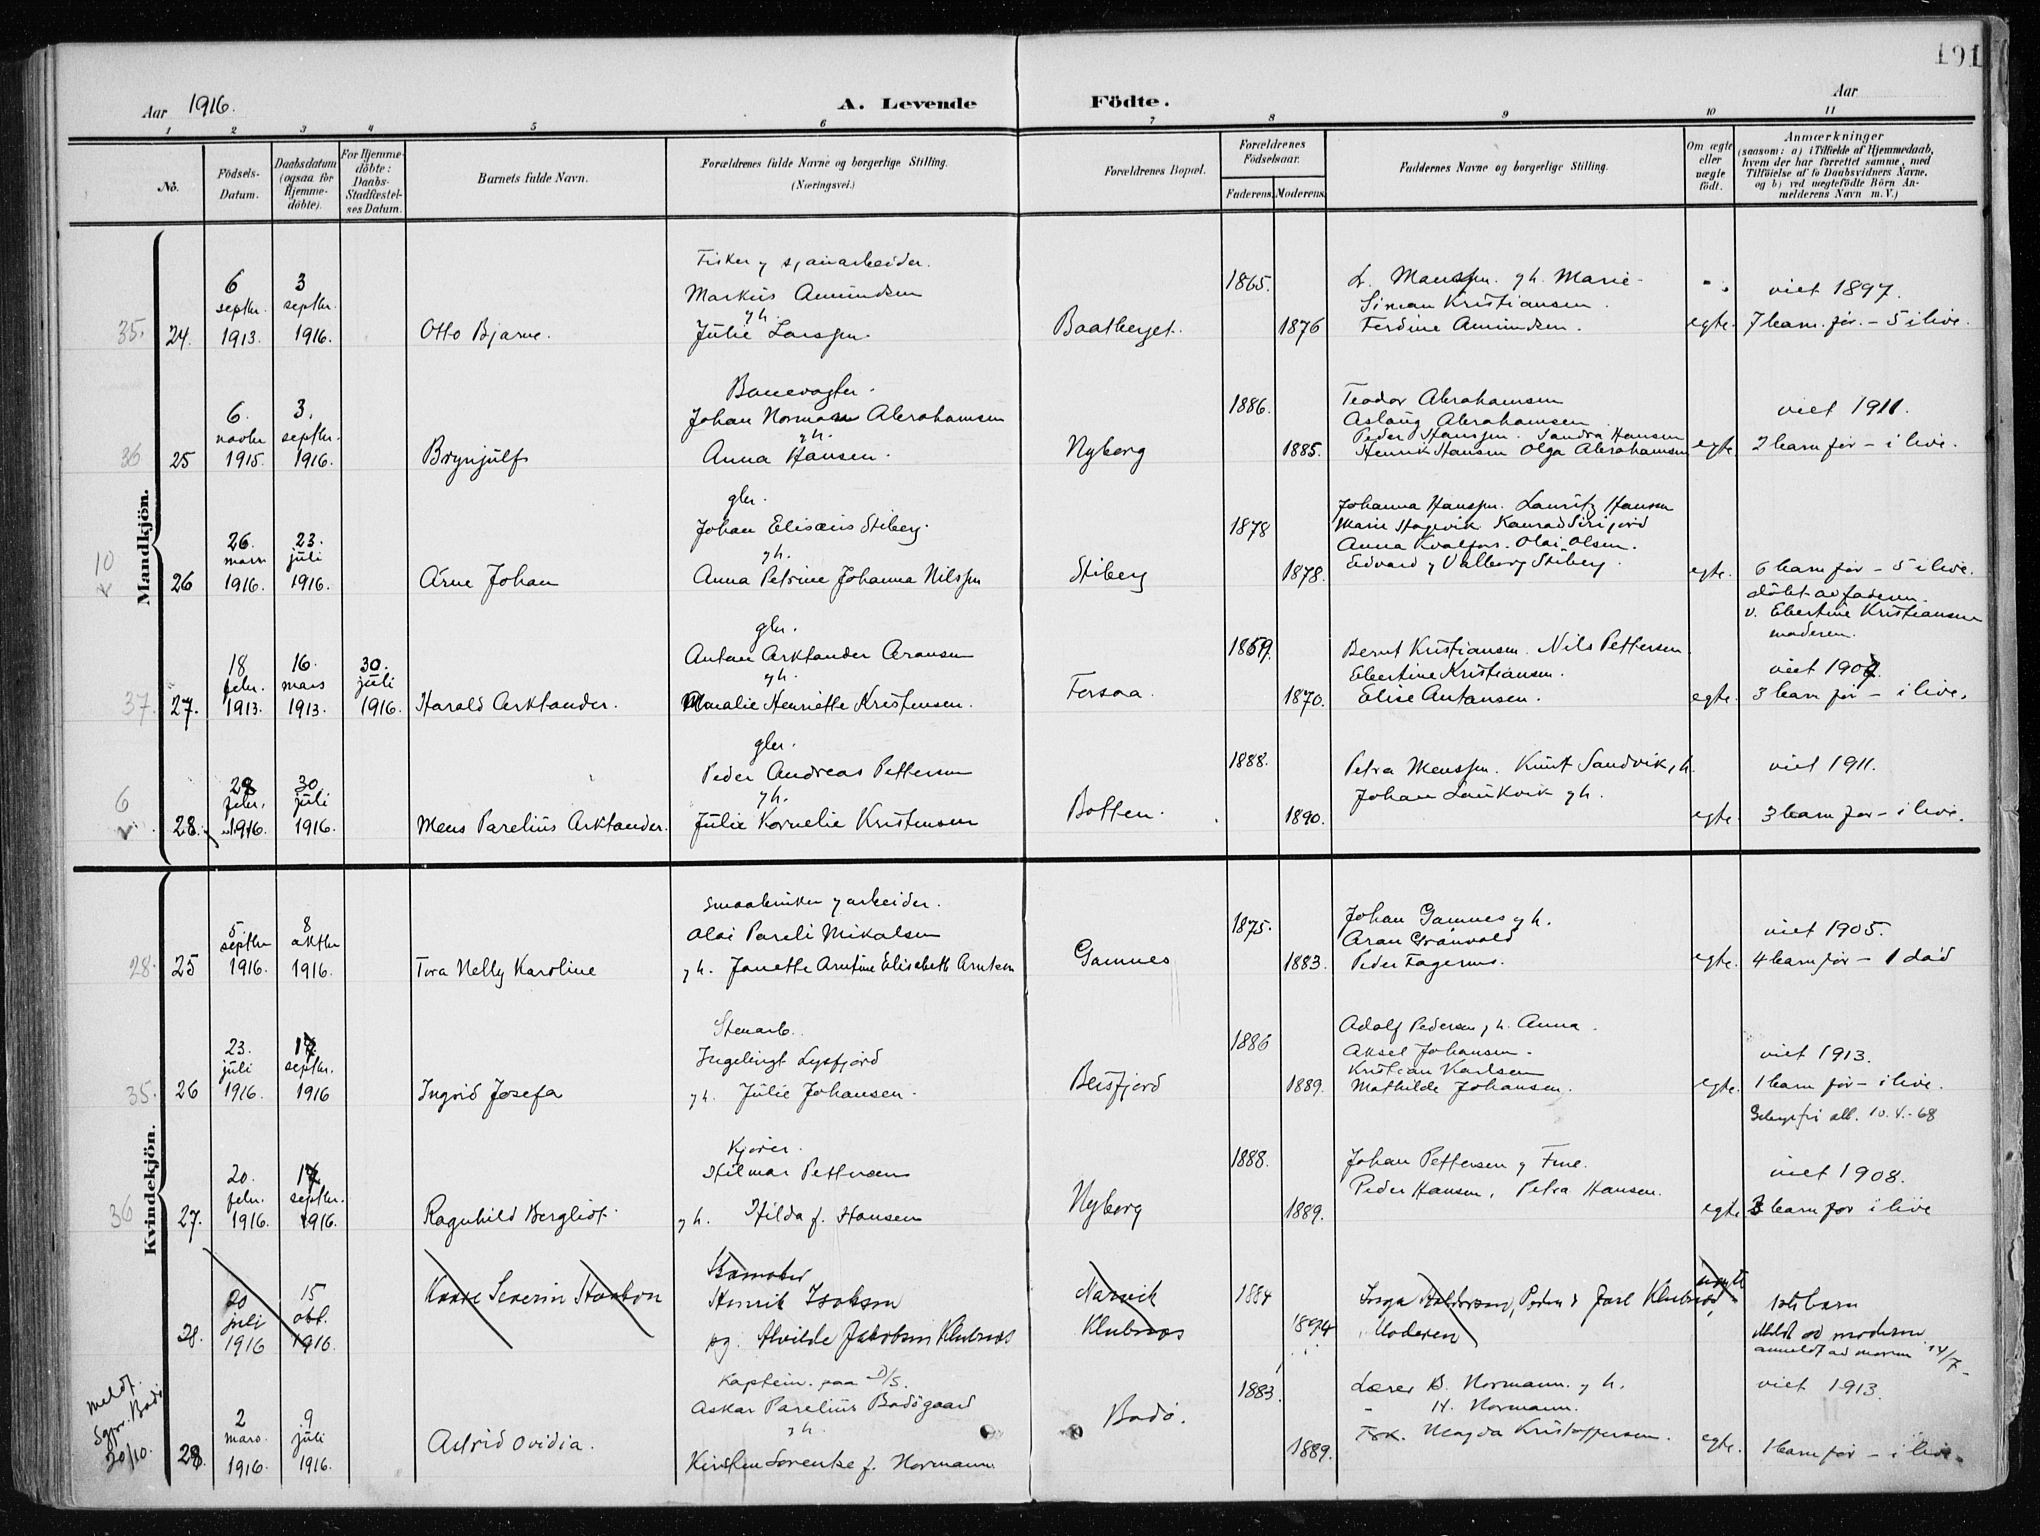 191
Aar 1916.
A. Levende
Födte.
Aar
1
2
3
4
5
6
7
8
9
10
11
No.
Födsels-
Datum.
Daabsdatum
(ogsaa for
Hjemme-
döbte).
For Hjemme-
döbte:
Daabs-
Stadfæstel-
ses Datum.
Barnets fulde Navn.
Forældrenes fulde Navne og borgerlige Stilling.
(Næringsvei.)
Forældrenes Bopæl.
Forældrenes
Födselsaar.
Faderens.
Moderens.
Faddernes Navne og borgerlige Stilling.
Om ægte
eller
uægte
födt.
Anmærkninger
(saasom: a) i Tilfælde af Hjemmedaab,
hvem der har forrettet samme, med
Tilföielse af to Daabsvidners Navne,
og b) ved uægtefödte Börn An-
melderens Navn m. V.)
Mandkjön.
35.
24.
6
septbr.
1913.
3
septbr.
1916.
Otto Bjarne.
Fisker y sjauarbeider.
Markus Amundsen
y h.
Julie Larssen.
Baatberget.
1865.
1876
L. Menssen. y h. Marie
Simon Kristiansen.
Ferdine Amundsen.
egte.
viet 1897.
7 barn før. - 5 i live.
36
25
6.
novbr
1915.
3.
septbr.
1916.
Brynjulf
Banevogter.
Johan Norman Abrahamsen
y h.
Anna Hansen.
Nyborg
1886.
1885.
Teodor Abrahamsen
Aslaug Abrahamsen.
Peder Hanssen. Sandra Hansen
Henrik Hansen Olga Abrahamsen
egte.
viet 1911.
2 barn før - i live.
10
v
26
26.
mars
1916.
23.
juli
1916.
Arne Johan
gbr.
Johan Elisæus Stiberg.
y h.
Anna Petrine Johanna Nilssen
Stiberg
1878
1878.
Johanna Hanssen. Lauritz Hansen
Marie Hagevik Konrad Sirijord
Anna Kvalfors. Olai Olsen.
Edvard y Valborg Stiberg.
egte.
6 barn før - 5 i live.
37.
27.
18
febr.
1913.
16.
mars
1913.
30.
juli
1916.
Harald Arktander.
gbr.
Anton Arktander Aronsen
y h.
Amalie Henriette Kristensen.
Forsaa.
1869.
1870.
Bernt Kristiansen. Nils Pettersen
Ebertine Kristiansen.
Elise Antonsen.
egte.
døbt av faderen
v. Ebertine Kristiansen
moderen.
3 barn før - i live.
6
v.
28.
febr.
1916.
30
juli
1916.
Mens Parelius Arktander.
gbr.
Peder Andreas Pettersen
y h.
Julie Kornelie Kristensen
Botten.
1888.
1890.
Petra Menssen. Knut Sandvik y h.
Johan Laukvik y h.
egte.
viet 1911.
3 barn før - i live.
Kvindekjön.
28.
25
5.
septbr
1916.
8
oktbr
1916.
Tora Nelly Karoline
smaabruker y arbeider.
Olai Pareli Mikalsen
y h. Janette Arntine Elisabeth Arntsen
Gamnes
1875.
1883.
Johan Gamnes y h.
Aron Grønvold
Peder Fagernes.
egte.
viet 1905.
4 barn før - 1 død
35.
26
23.
juli
1916.
septbr.
1916
Ingrid Josefa
Stenarb.
Ingebrigt Lysfjord
y h. Julie Johansen.
Beisfjord
1886
1889.
Adolf Pedersen y h. Anna.
Aksel Johansen.
Kristian Karlsen
Mathilde Johansen.
egte.
viet 1913.
1 barn før - i live.
Gebyrfri att. 10.4.-68
36
27.
20.
febr.
1916.
septbr.
1916.
Ragnhild Bergliot.
Kjører.
Hilmar Pettersen
y h. Hilda f. Hansen
Nyborg
1888.
1889.
Johan Pettersen y Frue.
Peder Hansen, Petra Hansen.
egte
viet 1908.
3 barn før i live
28.
20
juli
1916
15
okt.
1916.
Severin
Henrik
og Alvilde Jakobsen Klubnæs
Narvik
Klubnæs
1884
1894
Moderen
1ste barn
anmeldt ad moren 14/7
meldt
Sgpr. Bodø
20/10.
28.
2
mars.
1916.
9
juli
1916.
Astrid Ovidia.
Kaptein. paa D/S.
Askar Parelius Bodøgaard
y h.
Kirsten Lorentse f. Normann
Bodø.
1883.
1889.
Lærer B. Normann. y h.
" H. Normann.
Frk. Magda Kristoffersen.
egte.
viet 1913.
1 barn før - i live.